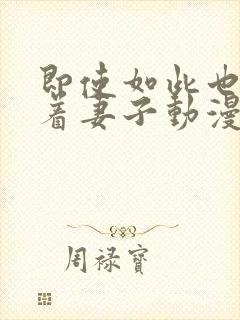 即使如此也
着妻子動漫
周禄寶